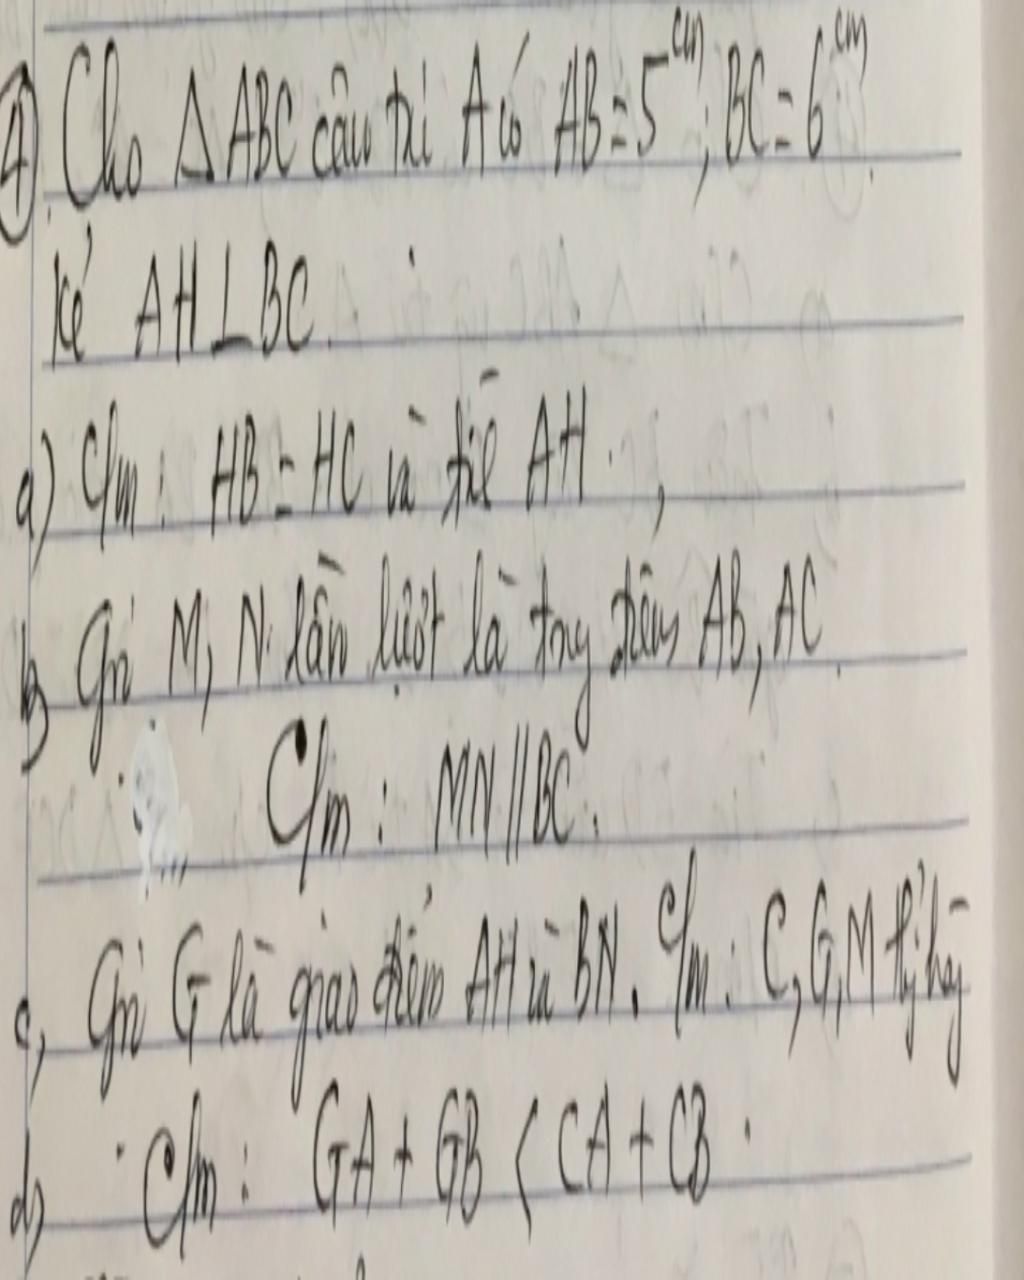 ④ Cho △ABC cân tại A có AB=5cm; BC=6cm.
Kẻ AH⊥BC.
a) C/m: HB=HC và tính AH.
b) Gọi M, N lần lượt là trung điểm AB, AC.
C/m: MN//BC.
c, Gọi G là giao điểm AH và BN. C/m: C, G, M thẳng hàng
d) C/m: GA+GB<CA+CB.